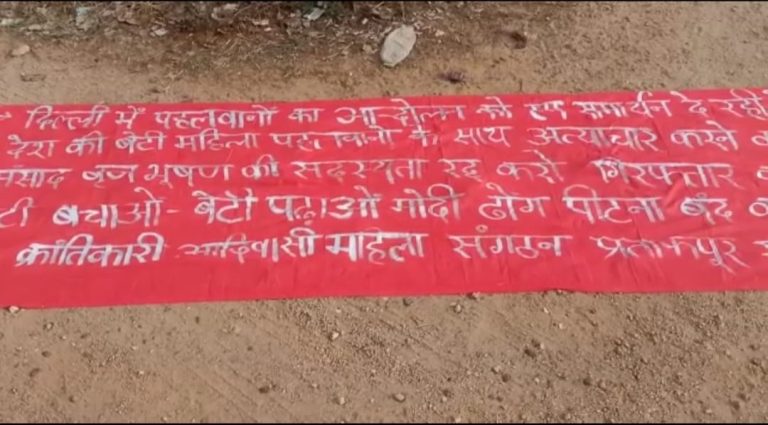 दिल्ली में पहलवानों का आन्दोलन को हम समर्थन दे रही
देश की बेटी महिला पहलवानों के साथ अत्याचार करने
सांसद बृज भूषण की सदस्यता रद्द करो गिरफ्तार
टी बचाओ - बेटी पढ़ाओ मोदी ढोंग पीटना बंद
क्रांतिकारी आदिवासी महिला संगठन प्रतापपूर